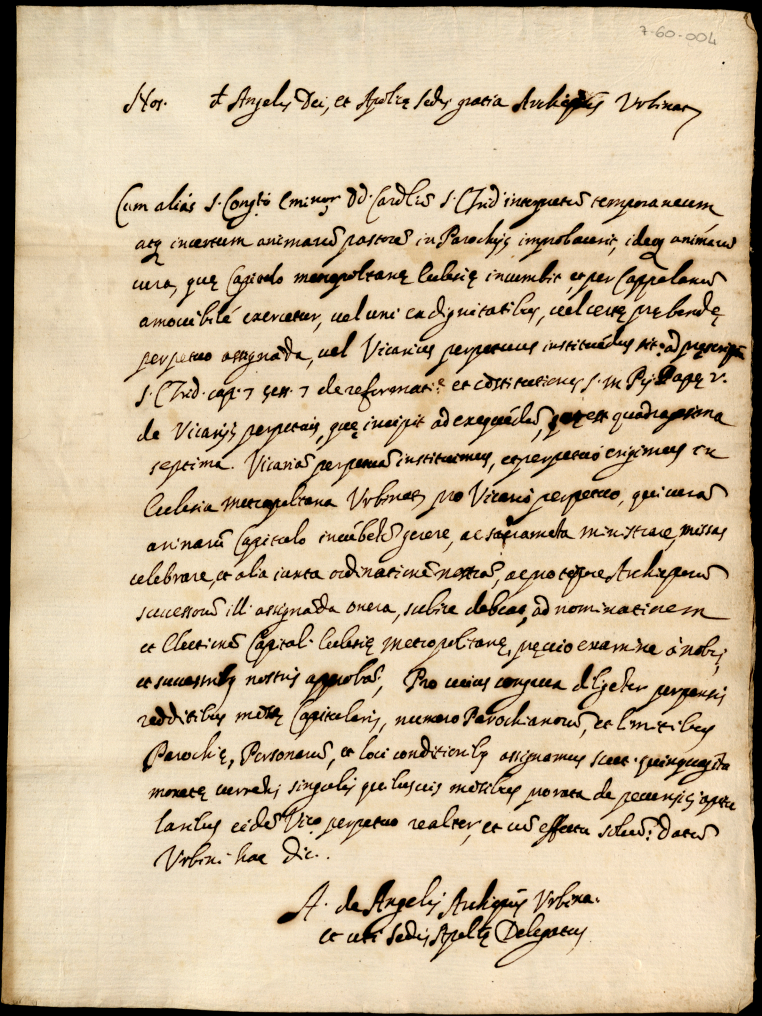 7-60-004
Nos. A Angelis Dei, et Aplicę Sedis gratia Archiepũs Urbinaten
Cum aliàs S. Congtõ Eminor DD. Cardliũ S. C. Trid interpretũ temporaneum
atq incertum animarũ pastorẽ in Parochijs improbaverit, ideoq animarũ
cura, quę Capitulo metropoltanę Ecclesię incumbit, et per Cappelanũ
amovibilẽ exercetur, vel uni ex dignitatibus, vel certę prębendę
perpetuo assignãda, vel Vicarius perpetuus instituẽdus sit: ad pręscriptũ
S. C. Trid. cap. 7 sess. 7 de reformatiẽ et cõstitutionis S. M. Pij Papę V.
de Vicarijs perpetuis, quę incipit ad exequẽdũ, quę est quadragesima
septima. Vicariã perpetuã instituimus, et perpetuò erigimus in
Ecclesia metropoltana Urbinaten pro Vicario perpetuo, qui curã
animarũ Capitulo incũbẽtẽ gerere, ac sacramẽta ministrare, missas
celebrare, et alia iuxta ordinationẽ nostrã, ac pro tẽpore Archiepõrũ
successorũ ill. assignãda onera, subire debeat, ad nominationem
et Electionẽ Capituli Ecclesię metropolitanę, pręvio examine à nobis,
et successoribq nostris approbãt, Pro cuius congrua diligẽter perpensis
redditibus mẽsę Capitularis, numero Parochianorũ, et limitibus
Parochię, Personarũ, et loci conditionibq assignamus scuta quinquagĩta
monetę currẽtis singulis quibusvis mẽsibus pro rata de pecunijs capitu
laribus eidẽ Vicº perpetuo realiter, et cũ effectu solvẽ: Datũ
Urbini hac die.
A. de Angelis Archiepũs Urbina.
et uti Sedis Aplicę Delegatus